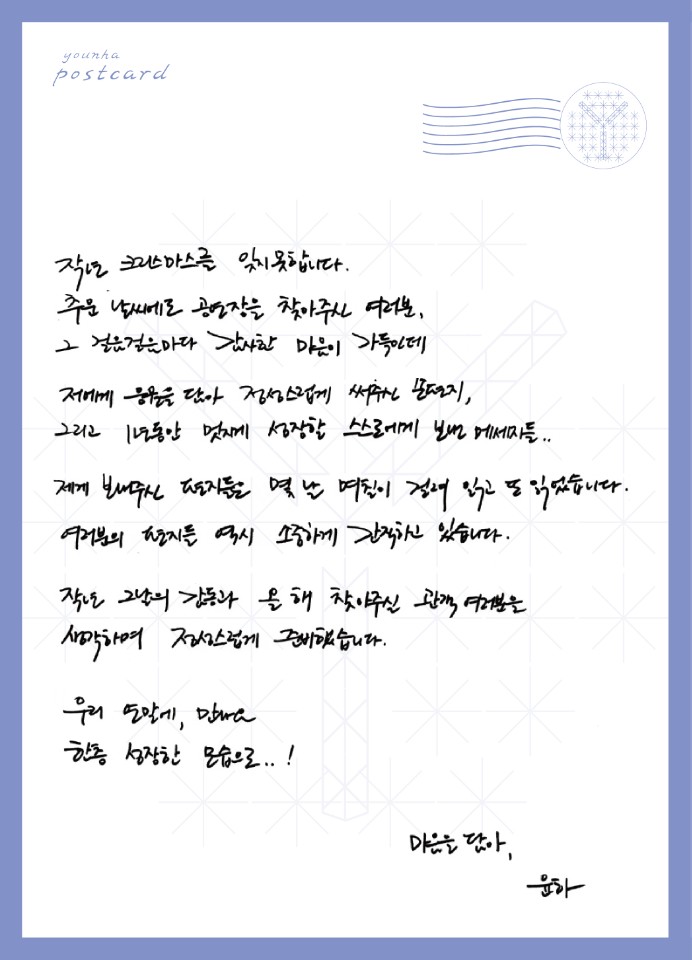 younha
postcard
작년 크리스마스를 잊지 못합니다.
추운 날씨에도 공연장을 찾아주신 여러분,
그 걸음걸음마다 감사한 마음이 가득인데
저에게 응원을 담아 정성스럽게 써주신 손편지,
그리고 1년동안 멋지게 성장할 스스로에게 보낸 메세지들..
제게 보내주신 편지들은 몇 날 며칠이 걸려 읽고 또 읽었습니다.
여러분의 편지들 역시 소중하게 간직하고 있습니다.
작년 그날의 감동과 올 해 찾아주실 관객 여러분을
생각하며 정성스럽게 준비했습니다.
우리 연말에, 만나요
한층 성장한 모습으로..!
마음을 담아,
윤하